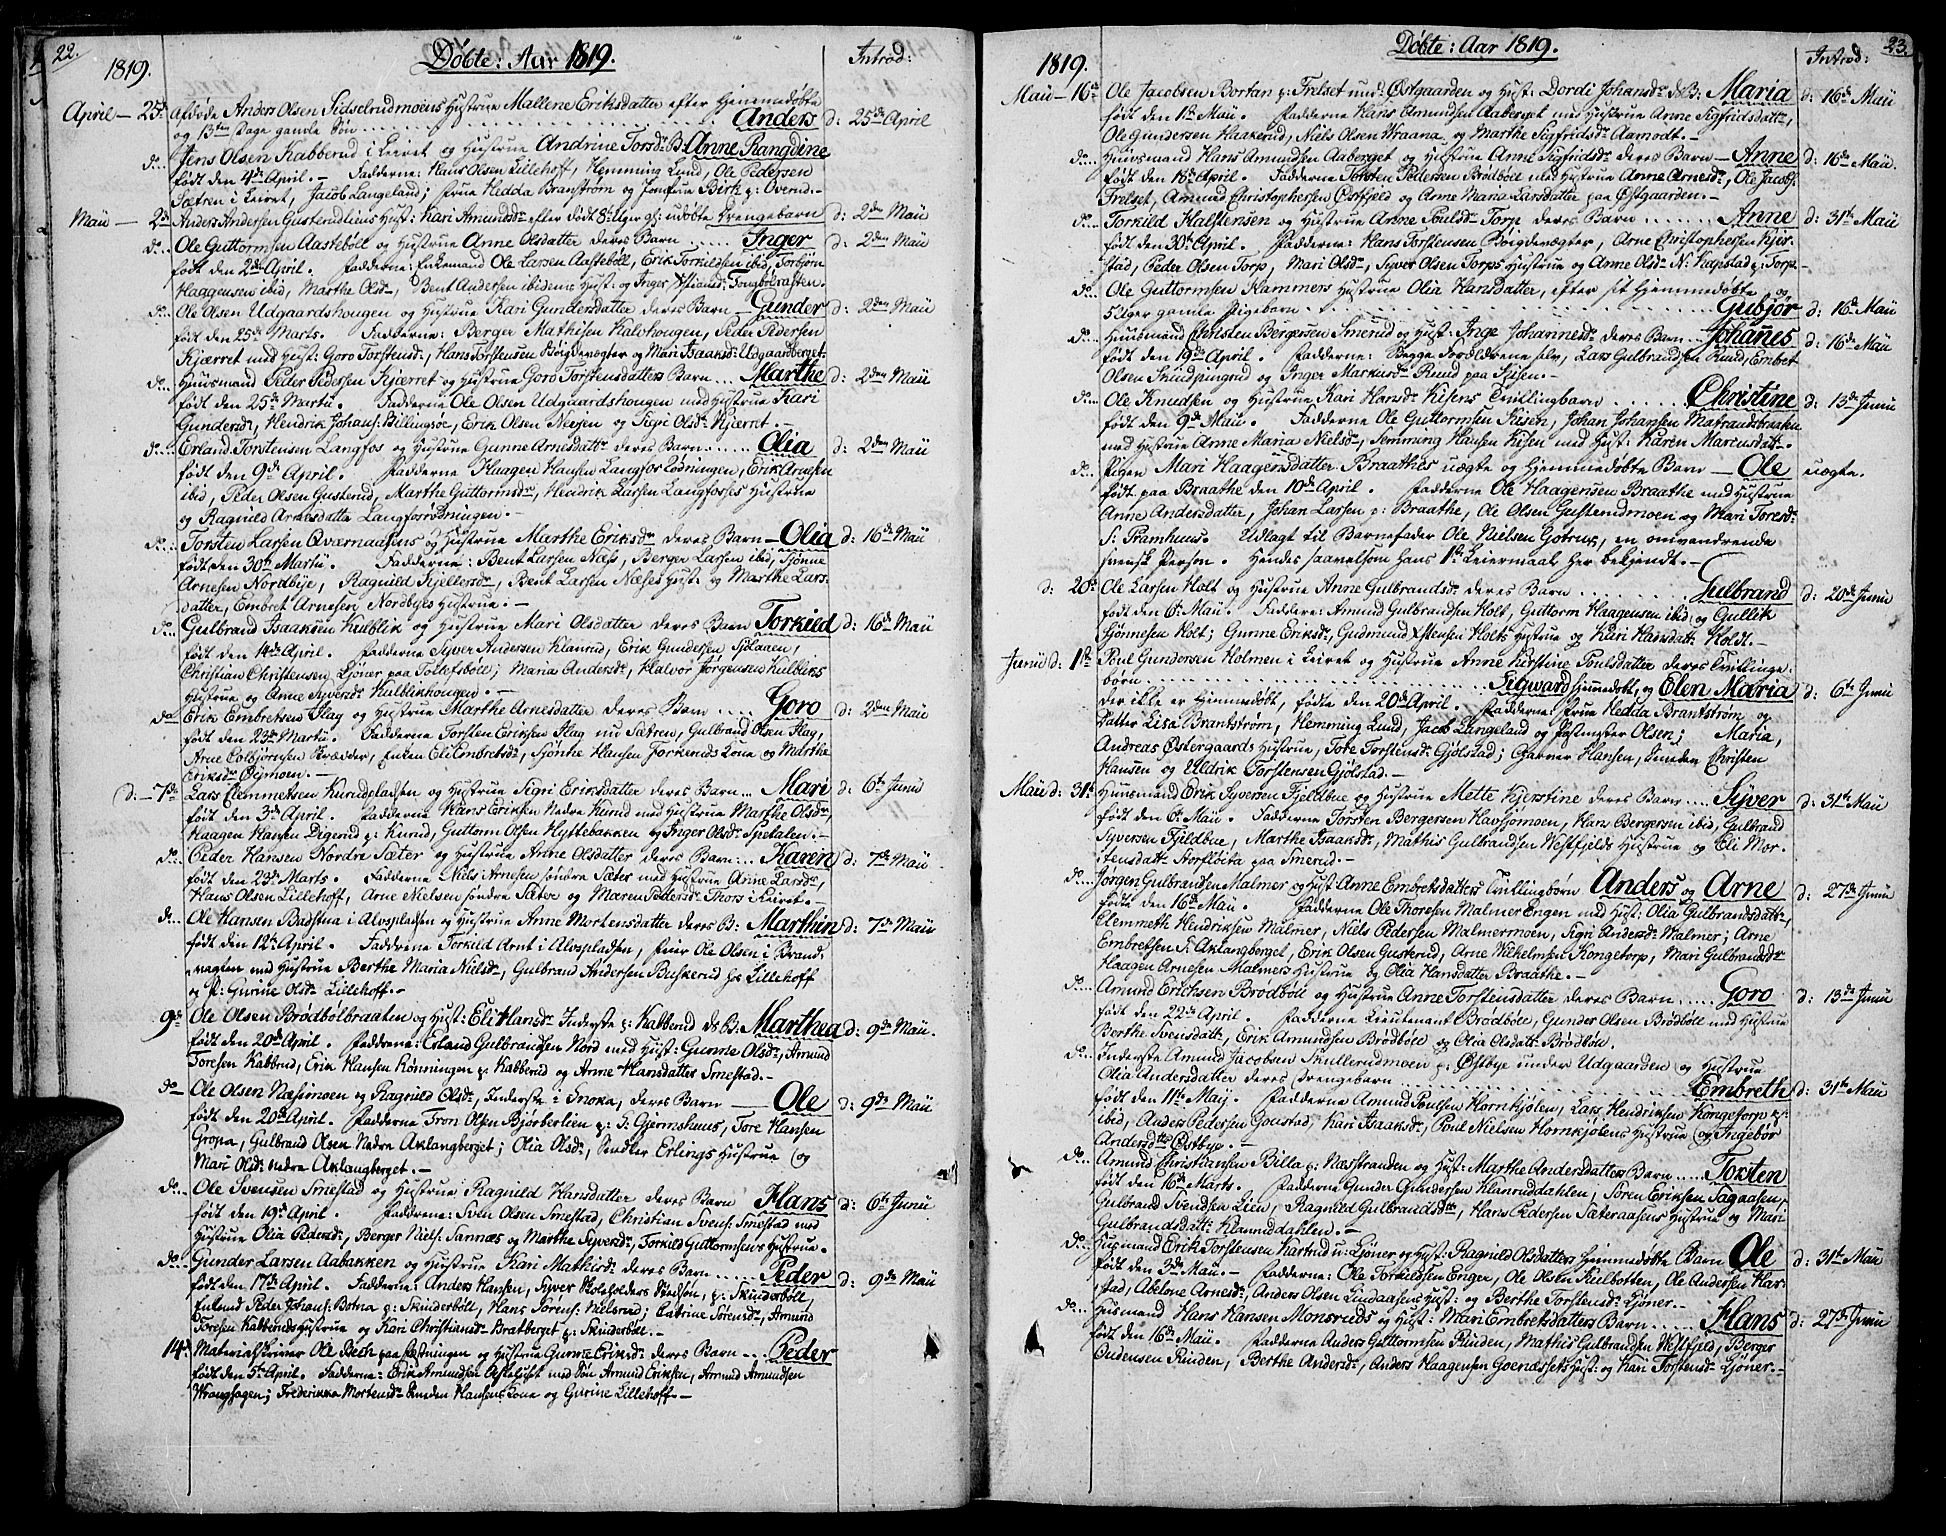 22.
Døbte: Aar 1819.
1819.
Introd:
April – 25de Afdøde Anders Olsen Sidselrudmoens Hustrue Mallene Eriksdatter efter Hjemmedøbte
og 13ten Dage gamle Søn Anders d: 25de April
do Jens Olsen Kabberud i Leiret og Hustrue Andrine Torsdr B: Anne Rangdine
født den 4de April. – Fadderne: Hans Olsen Lillehoff, Hemming Lund, Ole Pedersen
Sætren i Leiret, Jacob Langeland; Frue Hedda Branstrøm og Jomfrue Birk p: Overud. –
Maii – 2de Anders Andersen Gustendliens Hust: Kari Amundsdr efter født 8 Uger gl: udøbte Drengebarn d: 2den Maii
do Ole Guttormsen Aastebøll og Hustrue Anne Olsdatter deres Barn Inger d: 2den Maii
født den 2de April. Fadderne: Enkemand Ole Larsen Aastebøll, Erik Torkildsen ibid, Torbjørn
Haagensen ibid, Marthe Olsdr, Bent Andersen ibidems Hust: og Inger
do Ole Olsen Udgaardshougen og Hustrue Kari Gundersdatter deres Barn – Gunder d: 2den Maii
født den 25de Marts. Fadderne: Berger Mathisen Kalshougen, Peder Pedersen
Kjærret med Hust: Goro Torstensdr, Hans Torstensen Bøigdevogter og Mari Isaaksdr Udgaardberget
do Huusmand Peder Pedersen Kjærret og Hustrue Goro Torstensdatters Barn Marthe d: 2den Maii
født den 25de Martii. Fadderne Ole Olsen Udgaardshougen med Hustrue Kari
Gundersdr, Hendrik Johans: Billingsøe, Erik Olsen Næsen og Sigri Olsdr Kjærret. –
do Erland Torstensen Langfos og Hustrue Gunne Arnesdattr deres Barn Olia d: 2den Maii
født den 9de April. Fadderne Haagen Hansen Langfos Rødningen, Erik Arnesen
ibid, Peder Olsen Gusterud, Marthe Guttormsdr, Hendrik Larsen Langfosses Hustrue
og Ragnild Arnesdatter Langfosrødningen. –
do Torsten Larsen Overnaasens og Hustrue Marthe Eriksdr deres Barn – Olia d: 16de Maii
født den 30te Martii. Fadderne: Bent Larsen Næss, Berger Larsen ibid, Tjønne
Arnesen Nordbye, Ragnild Kjellersdr, Bent Larsen Næses Hust: og Marthe Lars-
datter, Embret Arnesen Nordbyes Hustrue. –
do Gulbrand Isaaksen Kulblik og Hustrue Mari Olsdatter deres Barn Torkild d: 16de Maii
født den 14de April. Fadderne Syver Andersen Klanrud, Erik Gundersen Sjøliaaen,
Christian Christensen Ljøner paa Tolefsbøle; Maria Andersdr, Halvor Jørgensen Kulbliks
Hustrue og Anne Syversdr Kulblikhougen. –
do Erik Embretsen Flag og Hustrue Marthe Arnesdatter deres Barn Goro d: 2den Maii
født den 23de Martii. Fadderne Torsten Eriksen Flag nu Sætren, Gulbrand Olsen Flag,
Arne Colbjørnsen Kræder, Enken Eli Embretsdr, Tjønne Hansen Torkeruds Kone og Marthe
Eriksdr Øejmoen. –
d: – 7de Lars Clemmetsen Kundeladsen og Hustrue Sigri Eriksdatter deres Barn Mari d: 6te Junii
født den 3de April. Fadderne Hans Eriksen Nedre Kurud med Hustrue Marthe Olsdr,
Haagen Hansen Digerud p: Kurud, Guttorm Olsen Hyttebakken og Inger Olsdr Spetalen. –
do Peder Hansen Nordre Sæter og Hustrue Anne Olsdatter deres Barn: Karen d: 7de Maii
født den 23de Marts. Fadderne Niels Arnesen Søndre Sæter med Hustrue Anne Larsdr,
Hans Olsen Lillehoff, Arne Nielsen Søndre Sæter og Maren Pedersdr Thors i Leiret. –
do Ole Hansen Badstua i Alvspladsen og Hustrue Anne Mortensdatter deres B: Marthin d: 7de Maii
født den 12te April. Fadderne Torkild Arnt i Alvspladsen, Peder Ole Olsen i Brand
vagten med Hustrue Berthe Maria Nielsdr, Gulbrand Andersen Buskerud hos Lillehoff
og P: Gurine Olsdr Lillehoff. –
9de Ole Olsen Brødbølbraaten og Hust: Eli Hansdr Inderste p: Kabberud ds B: Marthea d: 9de Maii.
født den 20de April. Fadderne: Erland Gulbrandsen Nord med Hust: Gunne Olsdr, Amund
Toresen Kabberud, Erik Hansen Rønningen p: Kabberud og Anne Hansdatter Smestad. –
do Ole Olsen Næsimoen og Ragnild Olsdr, Inderste i Snoka, deres Barn Ole d: 9de Maii
født den 20de April. Fadderne Tron Olsen Bjørberlien p: S: Gjemshuus, Tore Hansen
Gropa, Gulbrand Olsen Nedre Aklangberget; Olia Olsdr, Sendler Erlings Hustrue og
Mari Olsdr nedre Aklangberget. –
do Ole Svensen Smestad og Hustrue Ragnild Hansdatter deres Barn Hans d: 6te Junii
født den 19de April. Fadderne: Sven Olsen Smestad, Christian Svens: Smestad med
Hustrue Olia Pedersdr, Berger Niels: Sannæs og Marthe Syversdr, Torkild Guttormsens Hustrue.
do Gunder Larsen Aabakken og Hustrue Kari Mathisdr deres Barn Peder d: 9de Maii
født den 17de April. Fadderne: Anders Hansen, Syver Skoleholders Stedsøn, p: Skinderbøll
Enkmd Peder Johans: Botna p: Skinderbøll, Hans Sørens: Nielsrud; Catrine Sørensdr, Amund
Toresen Kabberuds Hustrue og Kari Christiansdr Bratberget p: Skinderbøl. –
14de Materialskriver Ole Beth paa Fæstningen og Hustrue Gunne Eriksdr deres Barn Peder
født den 5te April. Fadderne: Erik Amundsen Ostelyset med Søn Amund Eriksen, Amund Amundsen
Wranghagen; Frederikke Mortensdr Smeden Hansens Kone og Gurine Lillehoff. –
23.
Døbte: Aar 1819.
1819.
Introd:
Maii – 16de Ole Jacobsen Bortan p: Frelset und: Østgaarden og Hust: Dordi Johansdr ds B: Maria d: 16de Maii
født den 1ste Maii. Fadderne Hans Amundsen Aaberget med Hustrue Anne Sigfridsdattr,
Ole Gundersen Haakerud, Niels Olsen Wraana og Marthe Sigfridsdr Aamodt. –
do Huusmand Hans Amundsen Aaberget og Hustrue Anne Sigfridsdr deres Barn – Anne d: 16de Maii.
født den 18de April. Fadderne Torsten Pedersen Brødbøll med Hustrue Anne Arnesdr, Ole Jacobs:
Frelset, Amund Christophersen Østfjeld og Anne Maria Larsdatter paa Østgaarden. –
do Torkild Halstensen og Hustrue Anne Poulsdr Torp deres Barn Anne d: 31te Maii
født den 30te April. Fadderne: Hans Torstensen Bøigdevogter, Arne Christophersen Kjer-
stad, Peder Olsen Torp, Mari Olsdr, Syver Olsen Torps Hustrue og Anne Olsdr N: Hagestad p: Torp. –
do Ole Guttormsen Kammers Hustrue Olia Hansdatter, efter sit Hjemmedøbte og
5 Uger gamle Pigebarn Gubjør d: 16de Maii
do Huusmand Christen Bergersen Smerud og Hust: Inge Johannesdr deres Barn Johanes d: 16de Maii
født den 19de April. Fadderne: Begge Forældrene selv, Lars Gulbrandsen Ruud, Embret
Olsen Skindpingrud og Inger Markusdr Ruud paa Kisen. –
do Ole Knudsen og Hustrue Kari Hansdr Kisens Tvillingbarn Christine d: 13de Junii
født den 9de Maii. Fadderne Ole Guttormsen Kisen, Johan Johansen Matraadsbraaten
med Hustrue Anne Maria Nielsdr, Hemming Hansen Kisen med Hust: Karen Marcusdatr.
do Pigen Mari Haagensdatter Braathes uægte og Hjemmedøbte Barn – Ole uægte.
født paa Braathe den 10de April. Fadderne Ole Haagensen Braathe med Hustrue
Anne Andersdatter, Johan Larsen p: Braathe, Ole Olsen Gustendmoen og Mari Toresdr
S: Pramhuus. Udlagt til Barnefader Ole Nielsen Gotrus, en omvandrende
svensk Person. Hendes saavelsom hans 1ste Leiermaal her bekjendt. –
d: 20de Ole Larsen Holt og Hustrue Anne Gulbrandsdr deres Barn Gulbrand d: 20de Junii
født den 6te Maii. Faddere: Amund Gulbrandsen Holt, Guttorm Haagensen ibid, og Gullik
Tjønnesen Holt; Gunne Eriksdr, Gudmund Estensen Holts Hustrue og Kari Hansdatr Holdt.
Junii d: 1ste Poul Gundersen Holmen i Leiret og Hustrue Anne Kirstine Poulsdatter deres Tvillinge-
børn Sigward Hjemmedøbt, og Elen Maria d: 6te Junii
der ikke er Hjemmedøbt, fødte den 20de April. Fadderne: Frue Hedda Brantstrøm og
Datter Lisa Brantstrøm, Hemming Lund, Jacob Langeland og Postmester Olsen; Maria,
Andreas Østergaards Hustrue, Tore Torstensdr Gjølstad; Garver Hansen, Smeden Christen
Hansen og Uldrik Torstensen Gjølstad. –
Maii d: 31te Huusmand Erik Syversen Fjeldbue og Hustrue Mette Kjerstine deres Barn Syver d: 31te Maii
født den 6te Maii. Fadderne Torsten Bergersen Havsjømoen, Hans Bergersen ibid, Gulbrand
Syversen Fjeldbue, Marthe Isaaksdr, Mathis Gulbrandsen Westfjelds Hustrue og Eli Mor-
tensdatr Storfløita paa Smerud. –
do Jørgen Gulbrandsen Malmer og Hust: Anne Embretsdatters Tvillingbørn Anders og Arne d: 27de Junii
født den 16de Maii. Fadderne Ole Thoresen Malmer Engen med Hust: Olia Gulbrandsdattr,
Clemmeth Hendriksen Malmer, Niels Pedersen Malmermoen, Sigri Andersdr Malmer; Arne
Embretsen S: Aklangberget, Erik Olsen Gusterud, Arne Wilhelmsen Kongetorp, Mari Gulbrandsdr
Haagen Arnesen Malmers Hustrue og Olia Hansdatter Braathe. –
do Amund Erichsen Brødbøll og Hustrue Anne Torstensdatter deres Barn Goro d: 13de Junii
født den 22de April. Fadderne Lieutenant Brødbøll, Gunder Olsen Brødbøll med Hustrue
Berthe Svensdatr, Erik Amundsen Brødbøll og Olia Olsdatr Brødbøll.
do Inderste Amund Jacobsen Skullerudmoen p: Østbye under Udgaarden og Hustrue
Olia Andersdatter deres Drengebarn Embreth d: 31te Maii
født den 11te Maij. Fadderne Amund Poulsen Hornkjølen, Lars Hendriksen Kongetorp p:
ibid, Anders Pedersen Goustad, Kari Isaaksdr, Poul Nielsen Hornkjølens Hustrue og Ingebør
Andersdtr Østbye. –
do Amund Christiansen Billa p: Næsstranden og Hust: Marthe Andersdatters Barn Torsten
født den 16de Marts. Fadderne Gunder Gundersen Klanruddahlen, Søren Eriksen Sagaasen,
Gulbrand Svendsen Lien, Ragnild Gulbrandsdtr, Hans Pedersen Sæteraasens Hustrue og Mari
Gulbrandsdatr Klanruddahlen. –
do Husmand Erik Torstensen Kartrud u: Ljøner og Hust: Ragnild Olsdatters Hjemmedøbte Barn Ole d: 31te Maii
født den 3de Maii. – Fadderne: Ole Torkildsen Enger, Ole Olsen Kulbotten, Ole Andersen Har-
stad, Abelone Arnesdr, Anders Olsen Lundaasens Hust: og Berthe Torstensdr Ljøner. –
do Husmand Hans Hansen Monsruds og Hust: Mari Embretsdatters Barn Hans d: 27de Junii
født den 16de Maii. Fadderne Anders Guttormsen Riuden, Mathis Gulbrandsen Westfjeld, Berger
Oudensen Riuden, Berthe Andersdr, Anders Haagensen Goenæssets Hust: og Kari Torstensdr Ljøner. –